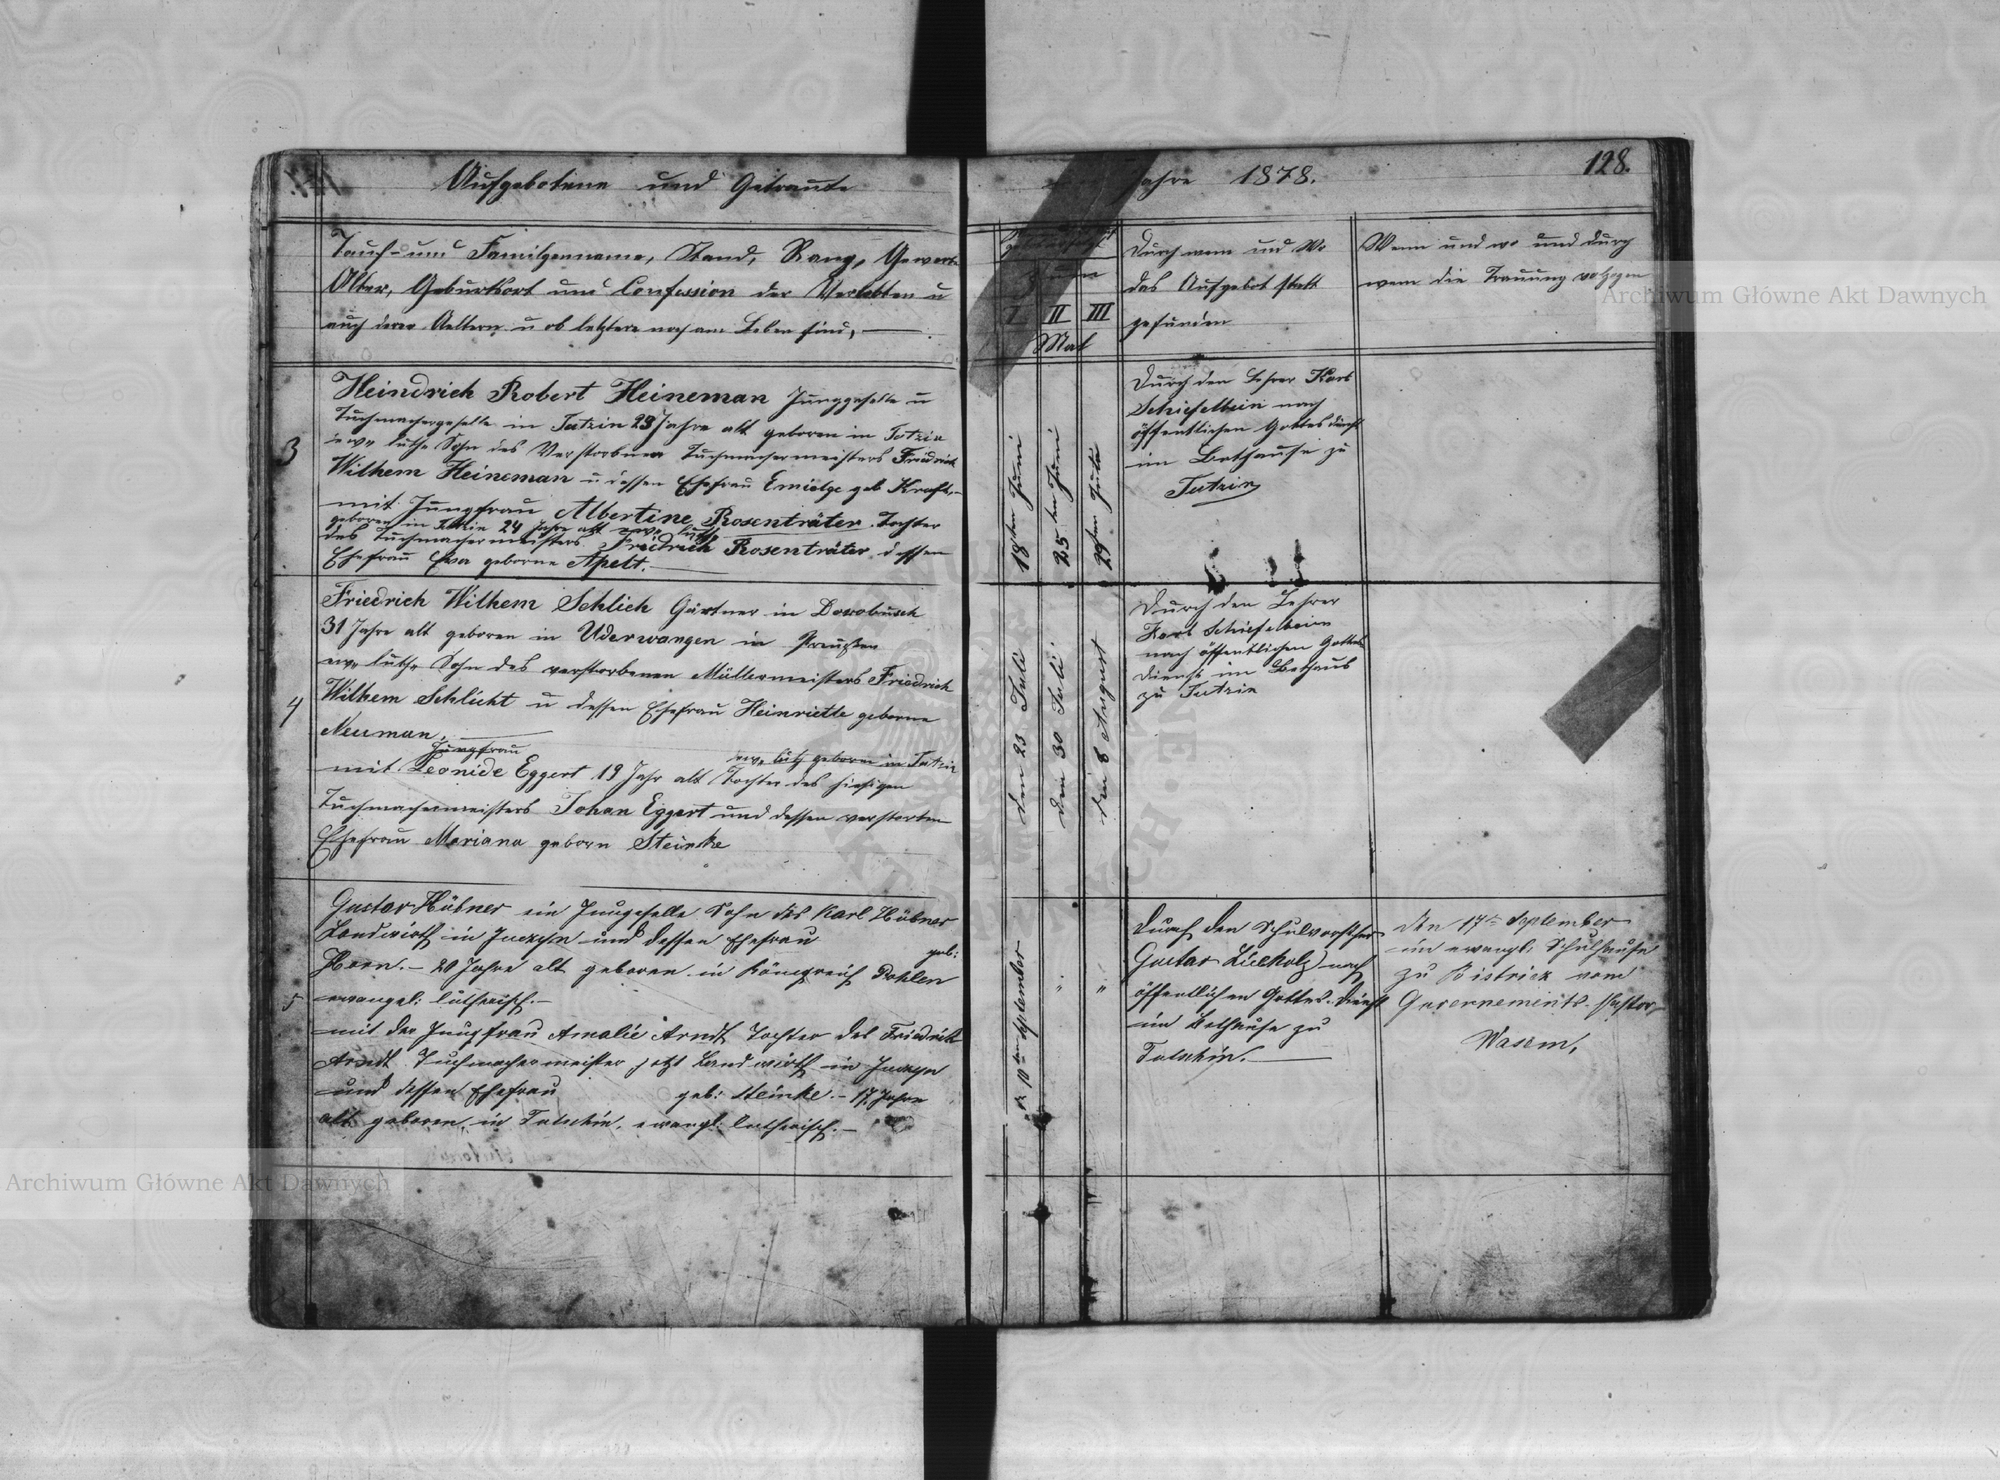 Aufgebotene und Getraute
Tauf- und Familgenname, Stand, Rang, Gewerbe
Alter, Geburtsort und Confession der Verlobten u
auch derer Aeltern u ob letztere noch am Leben sind,
3
Heindrich Robert Heineman Junggeselle u
Tuchmachergeselle in Tutzin 28 Jahre alt geboren in Tutzin
ew. luth. Sohn des Verstorbnen Tuchmachermeisters Friedrich
Wilhem Heineman u dessen Ehefrau Emielge geb Kraft
mit Jungfrau Albertine Rosenträter Tochter
geboren in Tutzin 24 Jahre alt ew. luth.
des Tuchmachermeisters Friedrich Rosenträter dessen
Ehefrau Eva geborne Apelt.
4
Friedrich Wilhem Schlich Gärtner in Dorobusch
31 Jahre alt geboren in Uderwangen in Preußen
ew. luth. Sohn des verstorbenen Müllermeisters Friedrich
Wilhem Schlicht u dessen Ehefrau Heinriette geborne
Neuman.
Jungfrau
ew. luth geboren in Tutzin
mit Leonide Eggert 19 Jahr alt Tochter des hiesigen
Tuchmachermeisters Johan Eggert und dessen verstorben
Ehefrau Mariana geborn Steinke
5
Gustav Hübner ein Jungeselle Sohn des Karl Hübner
Landwirth in und dessen Ehefrau geb:
Horn. - 20 Jahre alt geboren in Königreich Pohlen
evangel: lutherisch. -
mit der Jungfrau Amalie Arndt Tochter des Friedrich
Arndt Tuchmachermeister jetzt Landwirth in
und dessen Ehefrau geb: Steinke. - 17 Jahre
alt geboren in Tutschin. evangl: lutherisch. -
Jahre 1878.
128.
I II III
Mal
Durch wem und Wo
das Aufgebot statt
gefunden
Wenn und wo und durch
wem die Trauung volzogen
18ten Juni
25ten Juni
29ten Juli
Durch den Lehrer Karl
Schiefelbein nach
öffentlichen Gottesdinst
im Bethause zu
Tutzin
den 23 Juli
den 30 Juli
den 8 August
Durch den Lehrer
Karl Schiefelbein
nach öffentlichen Gottes
dienst im Bethaus
zu Tutzin
d. 10ten September
" "
Durch den Schulvorsteher
Gustav Zücholz nach
öffentlichen Gottes-Dinst
im Bethause zu
Tutschin.
Den 17te September
im evangl: Schulhause
zu Bistrick vom
Guvernements-Pastor
Wasem.
Archiwum Główne Akt Dawnych
Archiwum Główne Akt Dawnych